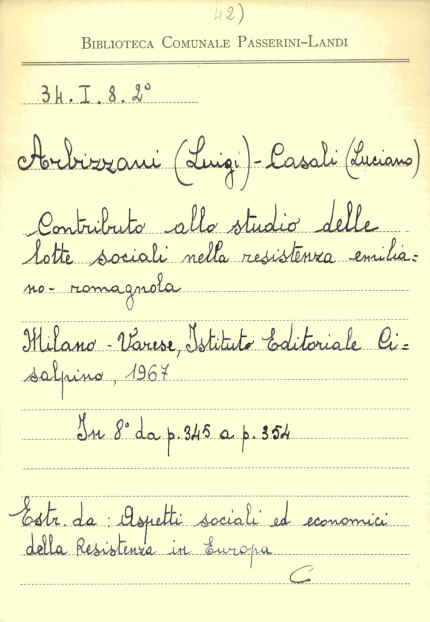 42)
BIBLIOTECA COMUNALE PASSERINI-LANDI
34. I. 8. 2°
Arbizzani (Luigi) - Casali (Luciano)
Contributo allo studio delle
lotte sociali nella resistenza emilia=
no-romagnola
Milano - Varese, Istituto Editoriale Ci=
salpino, 1967
In 8° da p. 345 a p. 354
Estr. da: Aspetti sociali ed economici
della Resistenza in Europa
C